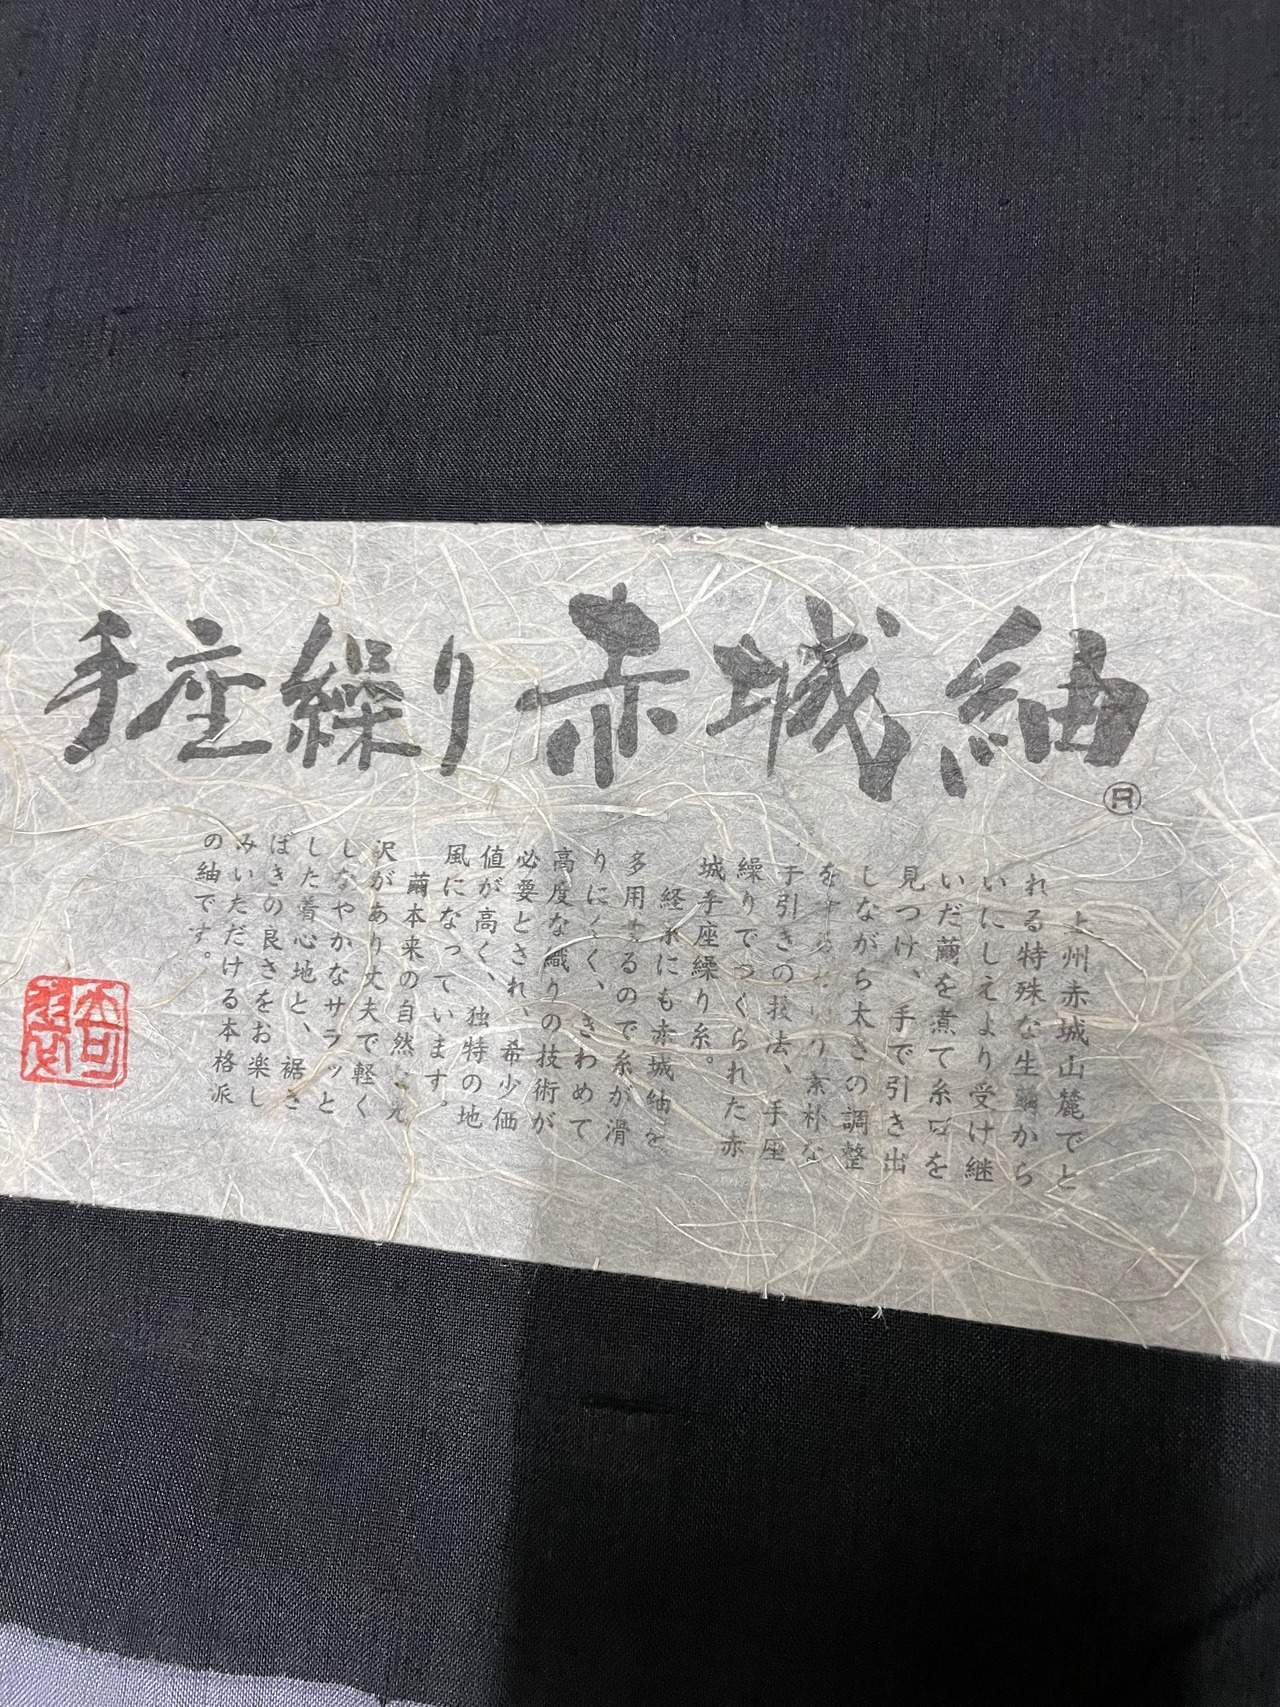 手座繰り赤城紬
®
上州赤城山麓でと
れる特殊な生繭から
いにしえより受け継
いだ繭を煮て糸口を
見つけ、手で引き出
しながら太さの調整
を 素朴な
手引きの技法、手座
繰りでつくられた赤
城手座繰り糸。
経糸にも赤城紬を
多用するので糸が滑
りにくく、きわめて
高度な織りの技術が
必要とされ、希少価
値が高く、独特の地
風になっています。
繭本来の自然な光
沢があり丈夫で軽く
しなやかなサラッと
した着心地と、裾さ
ばきの良さをお楽し
みいただける本格派
の紬です。